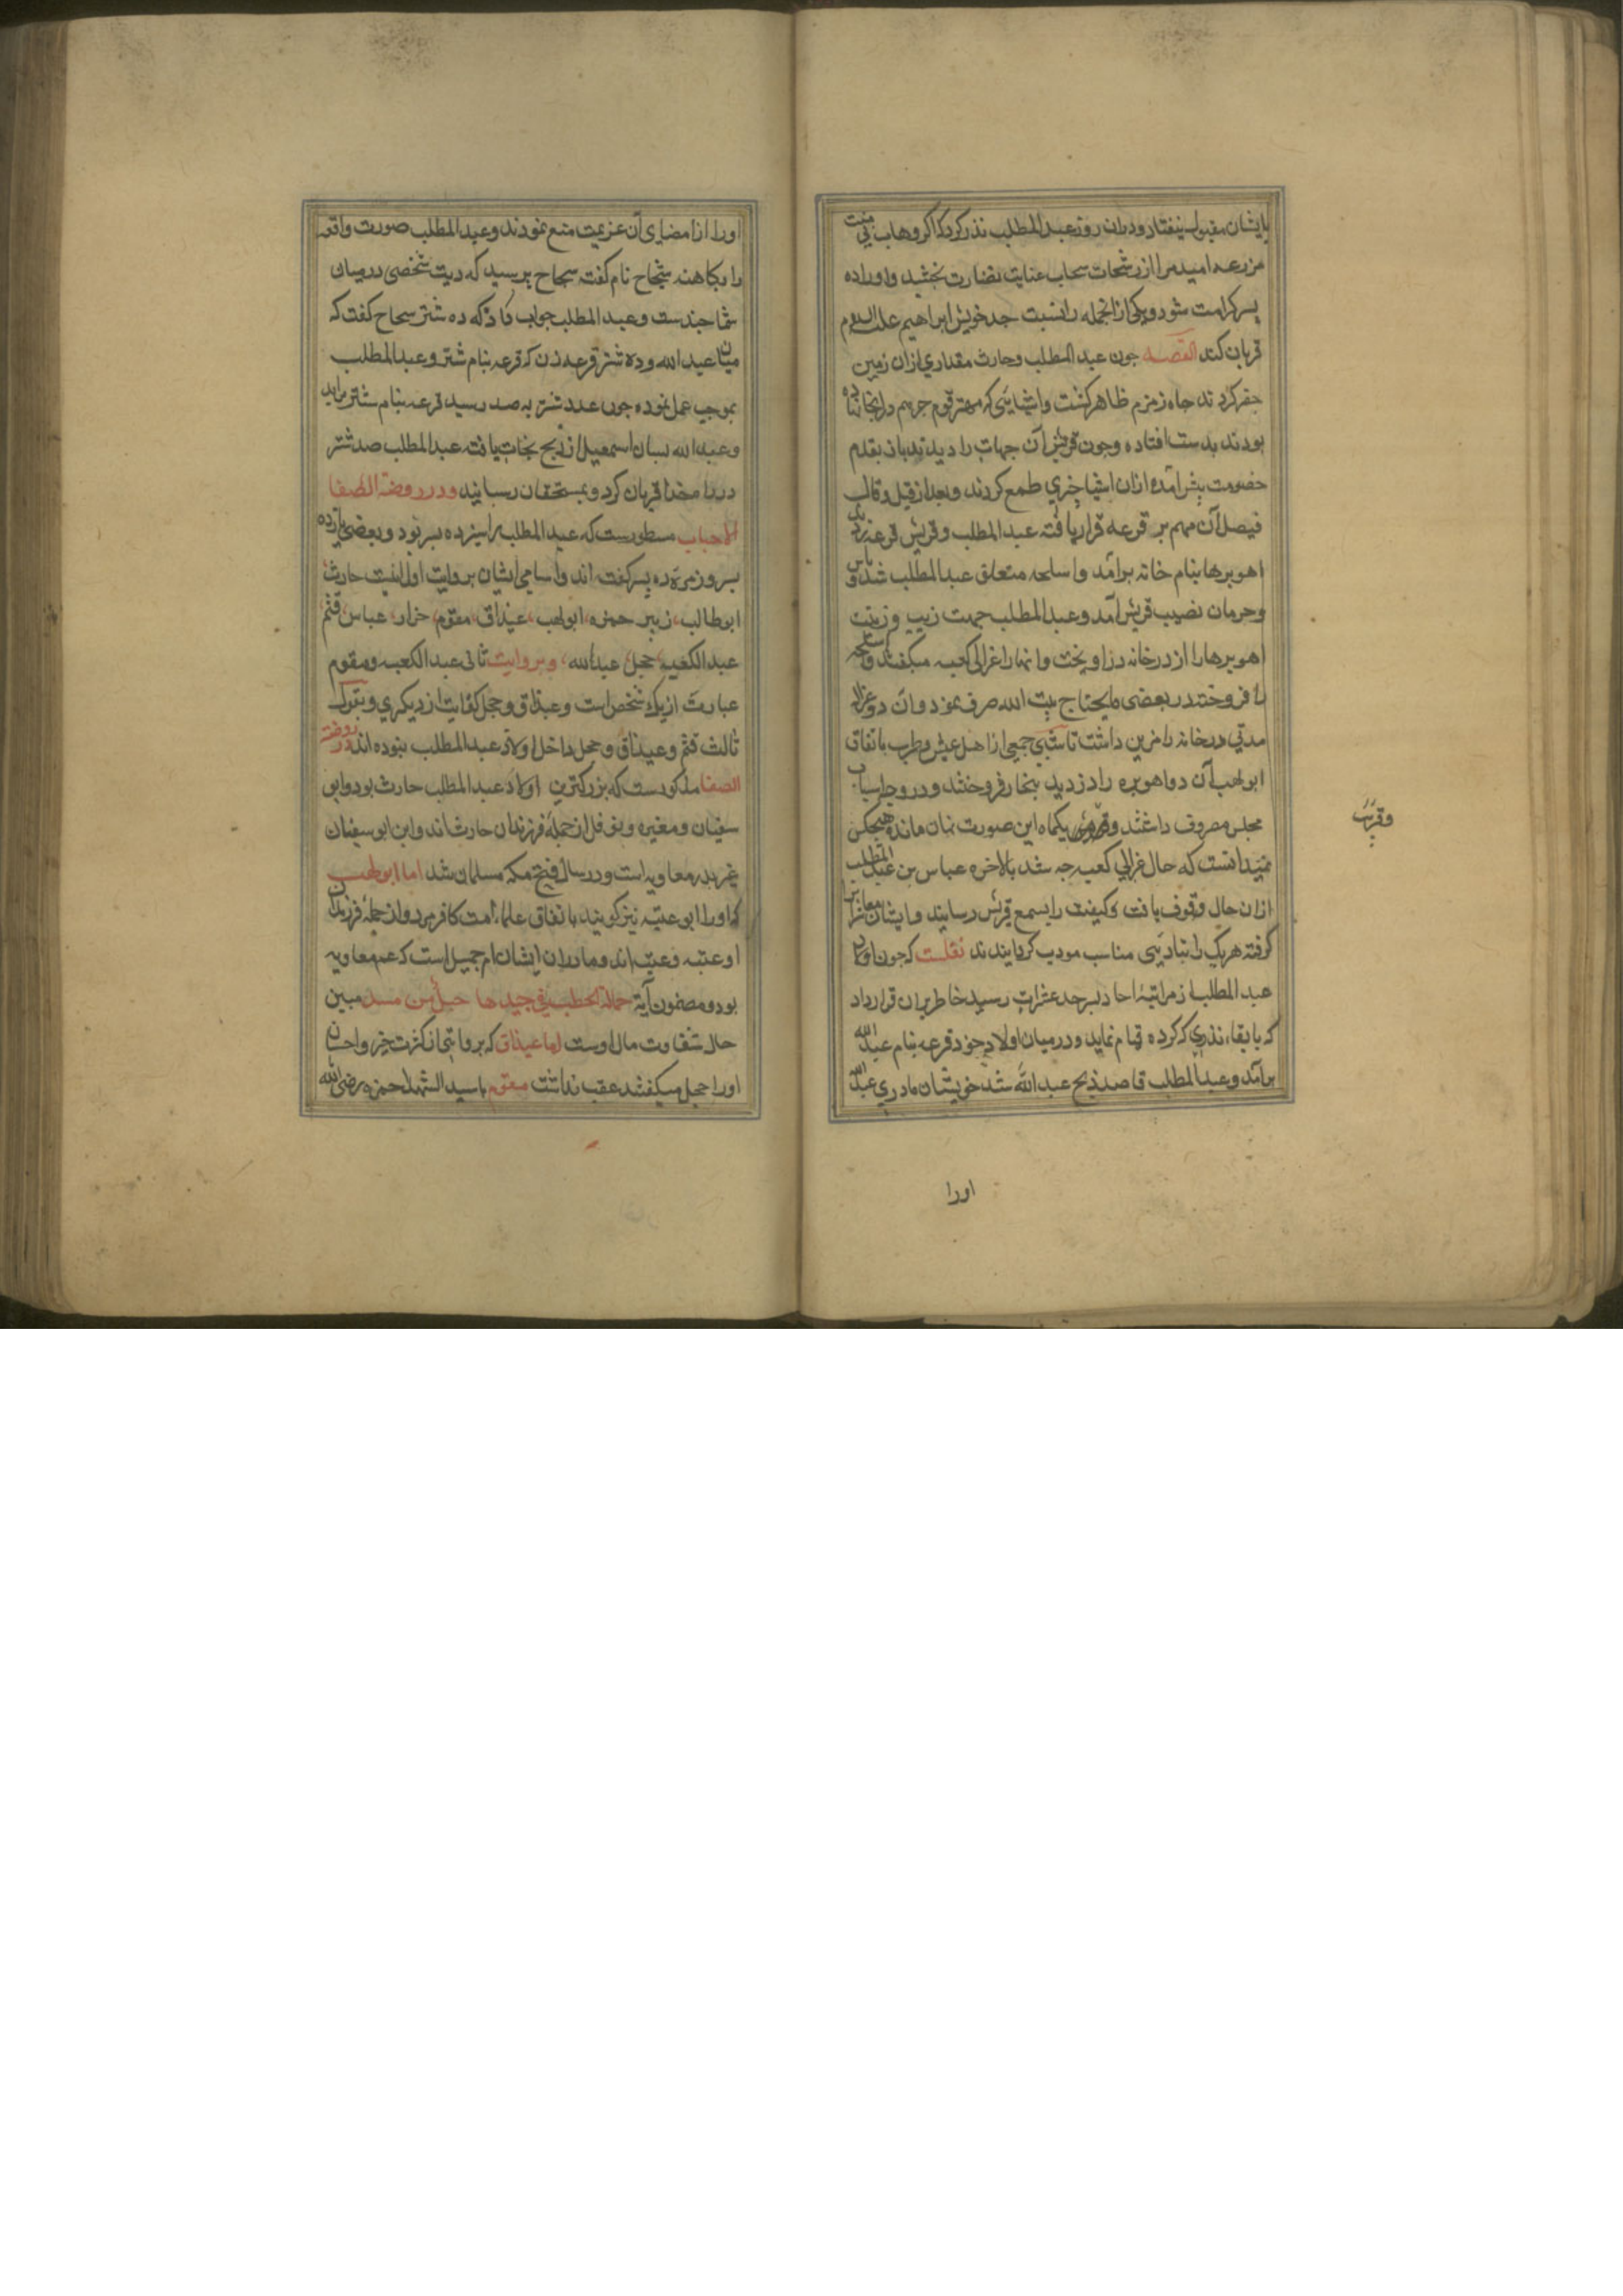 بایشان مقبول نیفتاد ودران روز عبدالمطلب نذر کرد که اکر وهاب بی منت
مزرعه امید مرا از رشحات سحاب عنایت بضارت بخشد واو را ده
پسر کرامت شود ویکی از انجمله را نسبت جد خویش ابراهیم علیه السلام
قربان کند القصه جون عبد المطلب وحارث مقداری ازان زمین
حفر کردند جاه زمزم ظاهر کشت واشیایی که مهتر قوم جرهم در انجا نهاده
بودند بدست افتاده وجون قریش آن جهات را دیدند بازبقدم
خصومت پیش آمده ازان اشیا چیزی طمع کردند وبعد از قیل وقال
فیصل آن مهم بر قرعه قرار یافته عبد المطلب وقریش قرعه زدند
اهوبرها بنام خانه برآمد واسلحه متعلق عبد المطلب شد ویاس
وحرمان نصیب قریش آمد وعبد المطلب جهت زیب وزینت
اهوبرها را از در خانه در اویخت وانها را غزالی کعبه میکفتند واسلحه
را فروخته در بعضی مایحتاج بیت الله صرف نمود وان دو غزاله
مدتی در خانه را مزین داشت تا شبی جمعی از اهل عیش وطرب باتفاق
ابولهب آن دو اهوبره را دزدیده بتجار فروختند ودر وجه اسباب
مجلس مصروف داشتند وقرب یکماه این صورت نهان مانده هیجکس
نمیدانست که حال غزالی کعبه جه شد بالاخره عباس بن عبد المطلب
ازان حال وقوف یافت وکیفیت را بسمع قریش رسانید وایشان
کرفته هریک را بتادیبی مناسب مودب کردانیدند نقلست که جون اولاد
عبد المطلب از مراتبهٔ احاد بسرحد عشرات رسید خاطر بران قرار داد
که بایفاء نذری که کرده قیام نماید ودرمیان اولاد خود قرعه بنام عبد الله
برآمد وعبد المطلب قاصد ذبح عبد الله شد خویشان مادری عبد الله
وقریب
اورا
اورا از امضای آن عزیمت منع نمودند وعبد المطلب صورت واقعه
را بکاهنه سجاح نام کفت سجاح پرسید که دیت شخصی درمیان
شما جندست وعبد المطلب جواب داد که ده شتر سجاح کفت که
میان عبد الله وده شتر قرعه زن که قرعه بنام شتر وعبد المطلب
بموجب عمل نموده جون عدد شتر به صد رسید قرعه بنام شتر برامد
وعبد الله بسان اسمعیل از ذبح نجات یافت عبد المطلب صد شتر
در راه خدا قربان کرد وبمستحقان رسانید ودر روضة الصفا
الاحباب مسطورست که عبد المطلب را سیزده پسر بود وبعضی یازده
پسر وزمرۀ ده پسر کفته اند واسامی ایشان بروایت اول اینست حارث
ابوطالب، زبیر حمزه، ابولهب، غیداق، مقوم، ضرار، عباس، قثم
عبد الکعبه، حجل، عبدالله، وبروایت ثانی عبد الکعبه ومقوم
عبارت از یک شخص است وغیداق وحجل کفایت از دیکری وبقول
ثالث قثم وغیداق وحجل داخل اولاد عبد المطلب نبوده اند در روضة
الصفا مذکورست که بزرکترین اولاد عبد المطلب حارث بود وابو
سفیان ومغیره ونوفل از جمله فرزندان حارث اند واین ابوسفیان
غیر پدر معاویه است ودر سال فتح مکه مسلمان شد اما ابو لهب
که اورا ابوعتبه نیز کویند باتفاق علماء امت کافر مرد واز جمله فرزندان
او عتبه وعتیبه اند ومادران ایشان ام جمیل است که عمه معاویه
بود ومضمون آیهٔ حمالة الحطب فی جیدها حبل من مسد مبین
حال شقاوت مال اوست اما غیداق که بروایتی از کثرت خیر واحسان
اورا حجل میکفتند عقب نداشت مقوم باسید الشهدا حمزه رضی الله